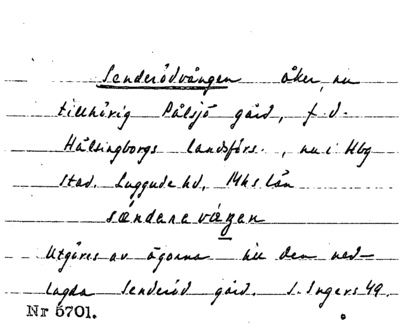 Senderödvången åker, nu
tillhörig Pålsjö gård, f.d.
Hälsingborgs landsförs., nu i Hbg
stad. Luggude hd, Mhs län
sændanavægan
Utgöres av ägorna till den ned-
lagda Senderöd gård. S. Ingers 49.
Nr 5701.